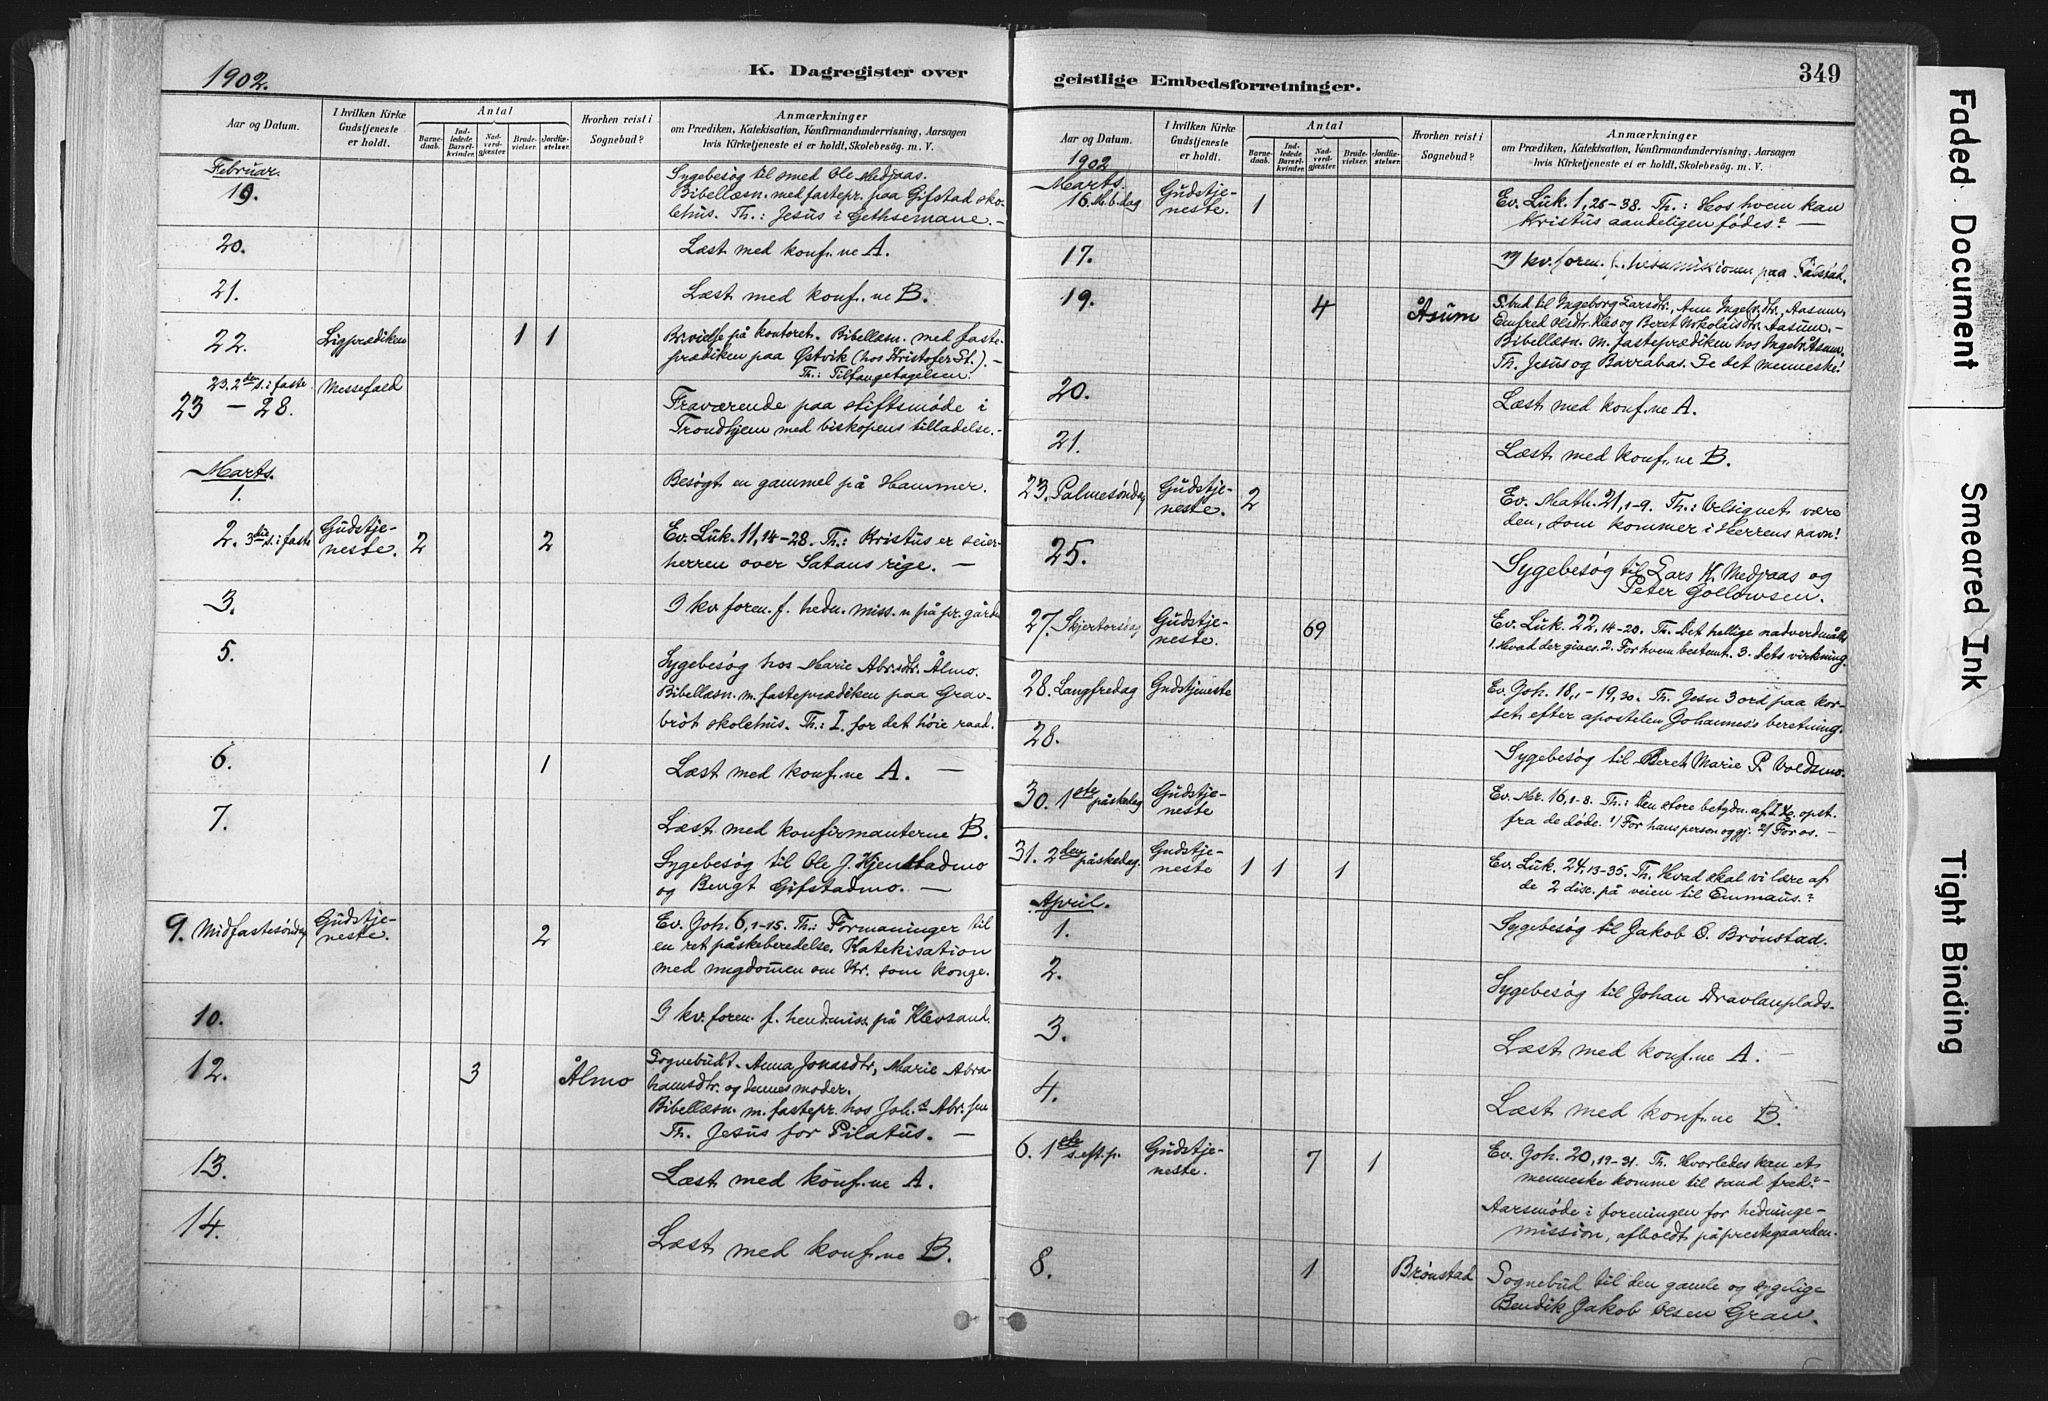 1902.
K. Dagregister over
Aar og Datum.
I hvilken Kirke Gudstjeneste er holdt.
Antal
Barne-daab.
Ind-ledede Barsel-kvinder.
Nad-verd-gjester.
Brude-vielser.
Jordfæ-stelser.
Hvorhen reist i Sognebud?
Anmærkninger
om Prædiken, Katekisation, Konfirmandundervisning, Aarsagen
hvis Kirketjeneste ei er holdt, Skolebesög. m. V.
Februar.
19.
Sygebesøg til smed Ole Medjaas.
Bibellæsn. med fastepr. paa Gifstad sko-
lehus. Th.: Jesus i Gethsemane. –
20. Læst med konf.ne A.
21. Læst med konf.ne B.
22. Ligprædiken 1 1
Br.vielse på kontoret. Bibellæsn. med faste-
prædiken paa Østvik (hos Kristofer St.). –
Th.: Tilfangetagelsen.
23. 2den s. i faste Messefald
23 – 28.
Fraværende paa stiftsmøde i
Trondhjem med biskopens tilladelse. –
Marts.
1. Besøgt en gammel på Hammer.
2. 3die s. i faste Gudstje-
neste. 2 2
Ev. Luk. 11, 14–28. Th.: Kristus er seier-
herren over Satans rige. –
3. I kv.foren. f. hedn. miss.n på pr.gården
5.
Sygebesøg hos Marie Abr.sdtr. Ålmo.
Bibellæsn. m. fasteprædiken paa Grav-
brøt skolehus. Th.: I. for det høie raad.
6. 1 Læst med konf.ne A. –
7.
Læst med konfirmanterne B.
Sygebesøg til Ole J. Hjenstadmo
og Bengt Gifstadmo. –
9. Midfastesøndag Gudstje-
neste. 2
Ev. Joh. 6, 1–15. Th.: Formaninger til
en ret påskeberedelse. Katekisation
med ungdommen om Kr. som konge.
10. I kv.foren. f. hend.miss. på Klevsand.
12. 3 Ålmo
Sognebudt. Anna Jonasdtr, Marie Abra-
hamsdtr. og dennes moder.
Bibellæsn. m. fastepr. hos Joh.s Abr.sen
Th. Jesus for Pilatus. –
13. Læst med konf.ne A.
14. Læst med konf.ne B.
geistlige Embedsforretninger.
349
Aar og Datum.
I hvilken Kirke Gudstjeneste er holdt.
Antal
Barne-daab.
Ind-ledede Barsel-kvinder.
Nad-verd-gjester.
Brude-vielser.
Jordfæ-stelser.
Hvorhen reist i Sognebud?
Anmærkninger
om Prædiken, Katekisation, Konfirmandundervisning, Aarsagen
hvis Kirketjeneste ei er holdt, Skolebesög. m. V.
1902
Marts.
16. M.b.dag Gudstje-
neste. 1
Ev. Luk. 1, 26–38. Th.: Hos hvem kan
Kristus aandeligen fødes? –
17. I kv.foren. paa
19. 4 Åsum
S.bud til Ingeborg Larsdtr., Ann Ingebr.dtr., Aasum,
Emfred Olsdtr. og Beret Nikolaisdtr. Aasum. –
Bibellæsn. m. fasteprædiken hos Ingebr. Åsum.
Th. Jesus og Barrabas. Se det menneske!
20. Læst med konf.ne A.
21. Læst med konf.ne B.
23. Palmesøndag Gudstje-
neste. 2
Ev. Math. 21, 1–9. Th.: Velsignet være
den, som kommer i Herrens navn!
25.
Sygebesøg til Lars H. Medjaas og
Peter
27. Skjertorsdag Gudstje-
neste. 69
Ev. Luk. 22, 14–20. Th. Det hellige nadverdmåltid
1. Hvad der gives. 2. For hvem bestemt. 3. Dets virkning.
28. Langfredag Gudstjeneste
Ev. Joh. 18, 1 – 19, 30. Th. Jesu 3 ord paa kor-
set efter apostelen Johannes's beretning.
28. Sygebesøg til Beret Marie P. Voldsmo.
30. 1ste påskedag Gudstje-
neste
Ev. Mr. 16, 1–8. Th.: Den store betydn. af J. Kr. opst.
fra de døde. 1/ For hans person og gj. 2/ For os. –
31. 2den påskedag. Gudstje-
neste 1 1 1
Ev. Luk. 24, 13–35. Th. Hvad skal vi lære af
de 2 disc. på veien til Emmaus?
April.
1. Sygebesøg til Jakob O. Brønstad.
2. Sygebesøg til Johan Dravlanplads.
3. Læst med konf.ne A. –
4. Læst med konf.ne B.
6. 1ste s. eft. p. Gudstje-
neste. 7 1
Ev. Joh. 20, 19–31. Th. Hvorledes kan et
menneske komme til sand fred? –
Aarsmøde i foreningen for hedninge-
mission, afholdt på prestegaarden.
8. 1 Brønstad
Sognebud til den gamle og sygelige
Bendik Jakob Olsen Grav.
Faded Document
Smeared Ink
Tight Binding